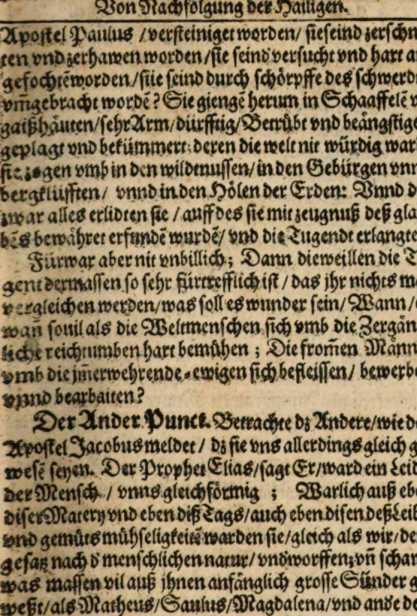 Von Nachfolgung der Hailigen.
Apostel Paulus / versteiniget worden / sie seind zerschn
ten vnd zerhawen worden / sie seind versucht vnd hart a
gefochtē worden / siie seind durch schörpffe des schwerd
vm̄gebracht wordē? Sie giengē herum in Schaaffelē
gaißhäuten / sehr Arm / dürfftig / Betrübt vnd beängstig
geplagt vnd bekümmert: deren die welt nit würdig war
sie zogen vmb in den wildenussen / in den Gebürgen vnn
bergklüfften / vnnd in den Hölen der Erden: Vnnd d
zwar alles erlidten sie / auff des sie mit zeugnuß deß gla
bēs bewähret erfundē wurdē / vnd die Tugendt erlangte
Fürwar aber nit vnbillich; Dann dieweillen die T
gent dermassen so sehr fürtrefflich ist / das jhr nichts m
vergleichen werden / was soll es wunder sein / Wann /
wañ souil als die Weltmenschen sich vmb die Zergän
liche reichtumben hart bemühen ; Die from̄en Männ
vmb die im̄erwehrende ewigen sich befleissen / bewerb
vnnd bearbaiten?
Der Ander Punct. Betrachte dz Andere / wie de
Apostel Jacobus meldet / dz sie vns allerdings gleich g
wesē seyen. Der Prophet Elias / sagt Er / ward ein Leid
der Mensch / vnns gleichförmig ; Warlich auß eb
diser Matery vnd eben diß Tags / auch eben disen deß Leib
vnd gemüts mühseligkeitē warden sie / gleich als wir / de
gesatz nach d' menschlichen natur / vndworffen; vñ schar
was massen vil auß jhnen anfänglich grosse Sünder g
weßt / als Matheus / Saulus / Magdalena / vnd ande